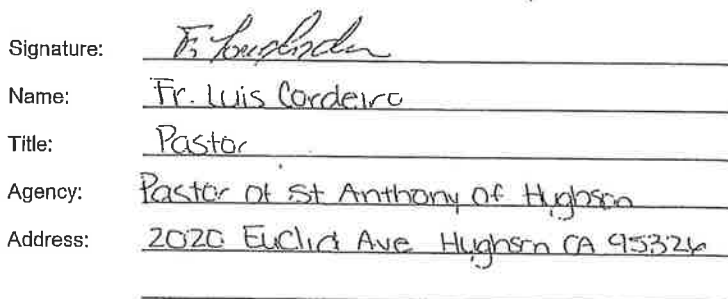 Signature:
Name: Fr. Luis Cordeiro
Title: Pastor
Agency: Pastor of St Anthony of Hughson
Address: 2020 Euclid Ave Hughson CA 95326